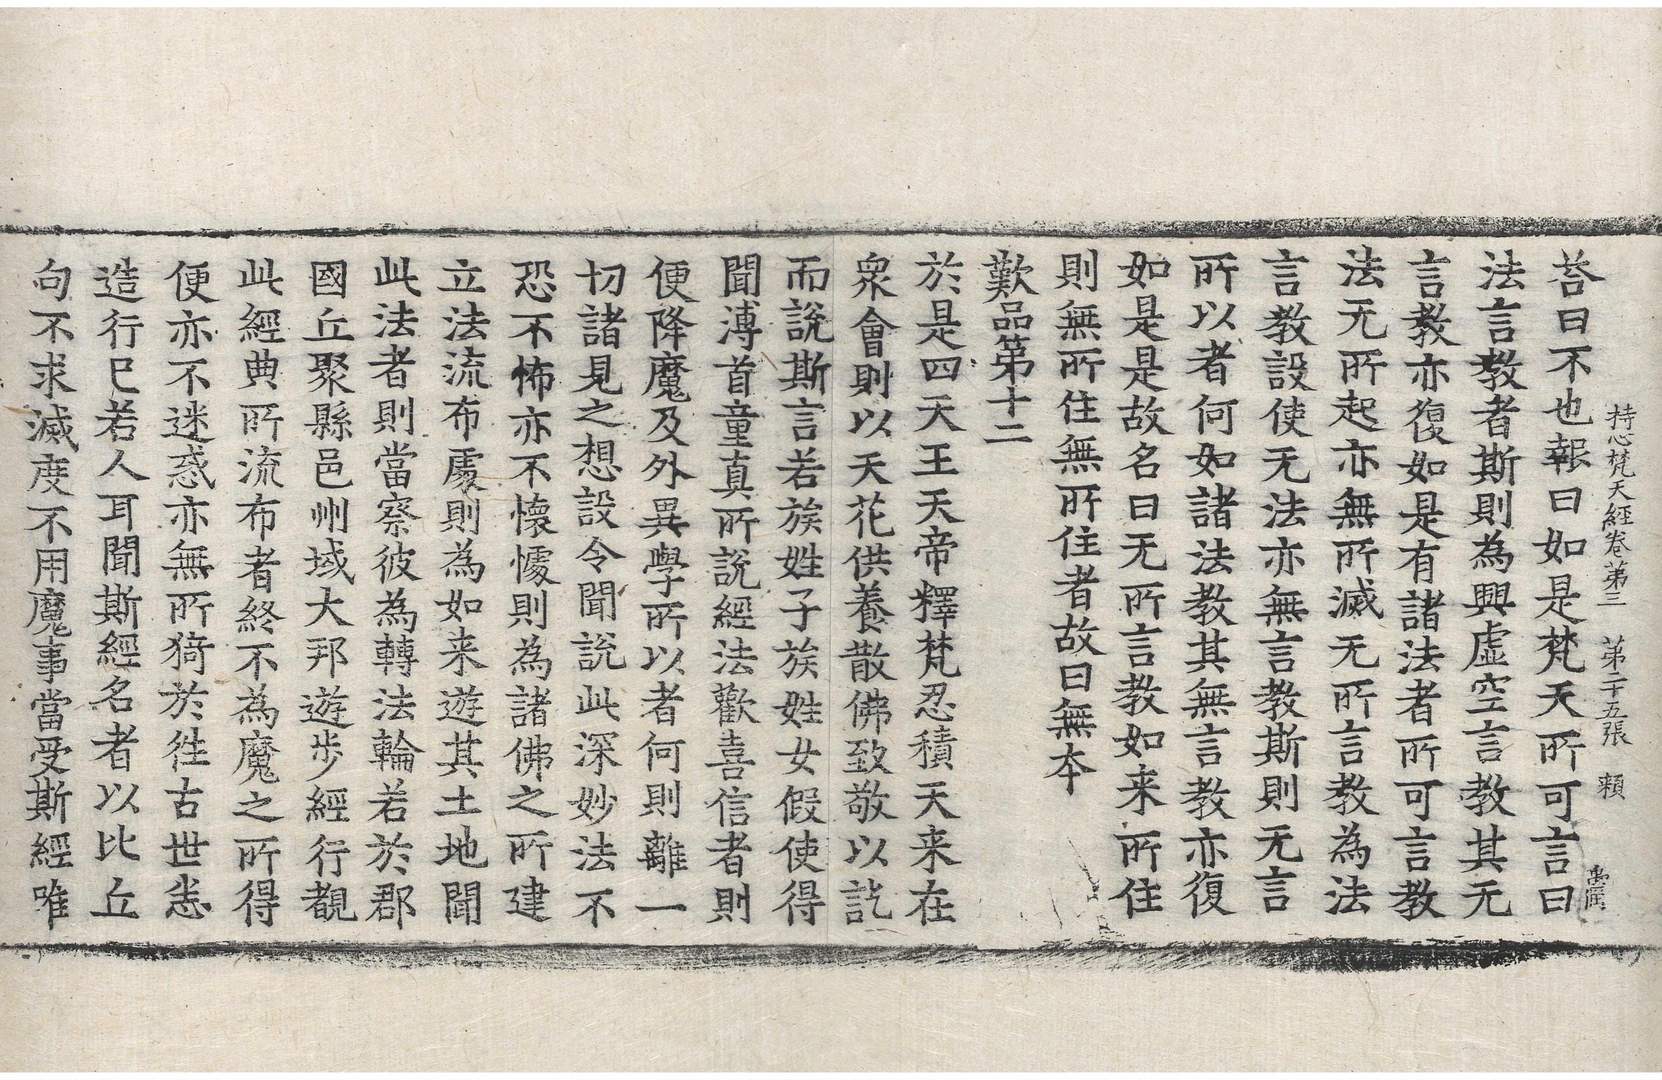 持心梵天經卷第三　第二十五張　賴
荅曰不也報曰如是梵天所可言曰
法言教者斯則為興虛空言教其无
言教亦復如是有諸法者所可言教
法无所起亦無所滅无所言教為法
言教設使无法亦無言教斯則无言
所以者何如諸法教其無言教亦復
如是是故名曰无所言教如来所住
則無所住無所住者故曰無本
歎品第十二
於是四天王天帝釋梵忍積天来在
衆會則以天花供養散佛致敬以訖
而說斯言若族姓子族姓女假使得
聞溥首童真所說經法歡喜信者則
便降魔及外異學所以者何則離一
切諸見之想設令聞說此深妙法不
恐不怖亦不懷懅則為諸佛之所建
立法流布處則為如来遊其土地聞
此法者則當察彼為轉法輪若於郡
國丘聚縣邑州域大邦遊步經行覩
此經典所流布者終不為魔之所得
便亦不迷惑亦無所猗於徃古世恙
造行已若人耳聞斯經名者以比丘
句不求滅度不用魔事當受斯經唯